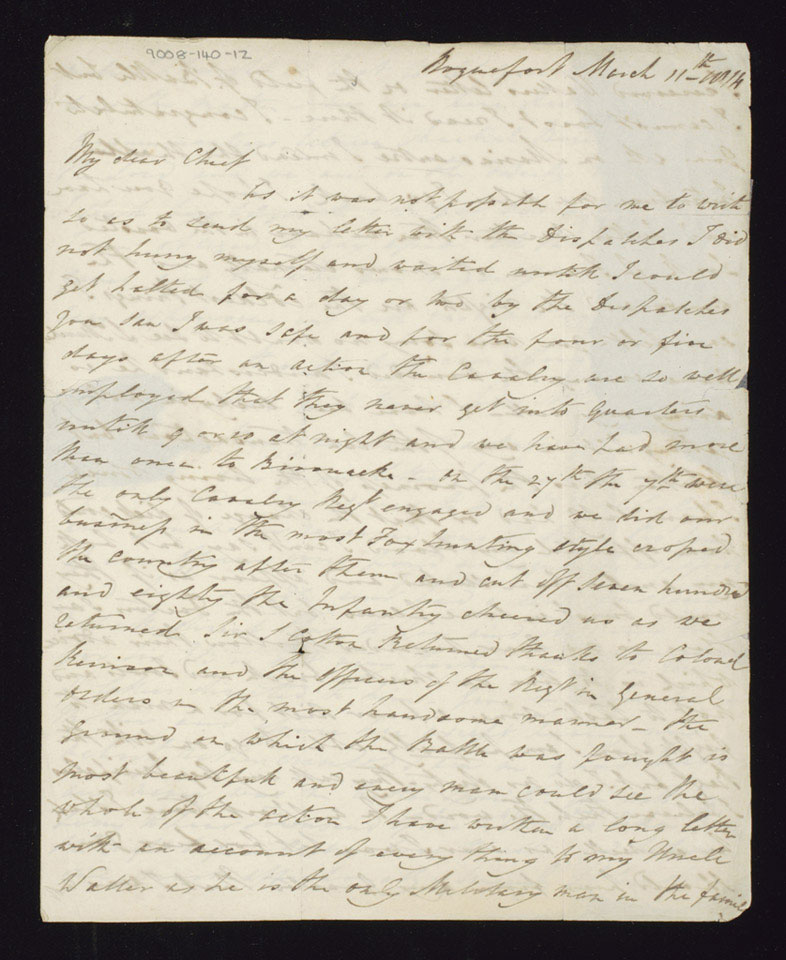 9008-140-12
Roquefort March 11th 1814
My dear Chief
As it was not possible for me to write
so as to send my letter with the Dispatches I did
not hurry myself and waited untill I could
get halted for a day or two by the Dispatches
you saw I was safe and for the four or five
days after an action the Cavalry are so well
employed that they never get into Quarters
untill 9 or 10 at night and we have had more
than once to Bivouacke - on the 27th the 7th were
the only Cavalry Regt engaged and we did our
business in the most Foxhunting style crossed
the country after them and cut off seven hundred
and eighty the Infantry cheered us as we
returned. Sir S Cotton Returned thanks to Colonel
Kerrison and the Officers of the Regt in General
orders in the most handsome manner - the
Ground on which the Battle was fought is
most beautifull and every man could see the
whole of the action I have written a long letter
with an account of every thing to my Uncle
Walter as he is the only Military man in the